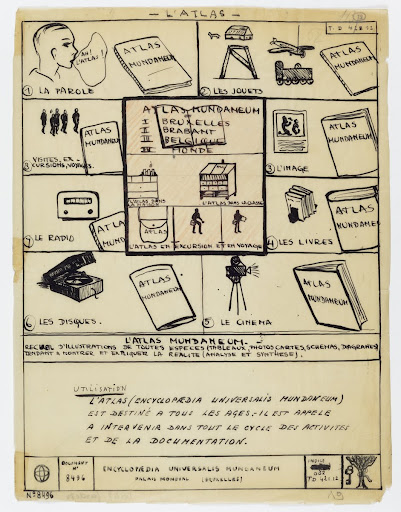 — L'ATLAS —
T. D 42 B 12
AH!
L'ATLAS!
ATLAS
MUNDANEUM
① LA PAROLE
② LES JOUETS
ATLAS
MUNDANEUM
ATLAS
MUNDANEUM
8 VISITES, EX-
CURSIONS, VOYAGES.
ATLAS, MUNDANEUM
I BRUXELLES
II BRABANT
III BELGIQUE
IV MONDE
L'ATLAS DANS
L'ATLAS DANS LA CLASSE
ATLAS
L'ATLAS EN EXCURSION ET EN VOYAGE
ATLAS
MUNDANEUM
③ L'IMAGE
ATLAS
MUNDANEUM
7 LE RADIO
ATLAS
MUNDANEUM
④ LES LIVRES
ATLAS
MUNDANEUM
⑥ LES DISQUES.
⑤ LE CINEMA
ATLAS
MUNDANEUM
L'ATLAS MUNDANEUM.
RECUEIL D'ILLUSTRATIONS DE TOUTES ESPÈCES (TABLEAUX, PHOTOS, CARTES, SCHEMAS, DIAGRAMES)
TENDANT A MONTRER ET EXPLIQUER LA REALITE (ANALYSE ET SYNTHÈSE).
UTILISATION
L'ATLAS (ENCYCLOPÆDIA UNIVERSALIS MUNDANEUM)
EST DESTINÉ A TOUS LES AGES - IL EST APPELE
A INTERVENIR DANS TOUT LE CYCLE DES ACTIVITES
ET DE LA DOCUMENTATION.
DOCUMENT
N°
8496
ENCYCLOPÆDIA UNIVERSALIS MUNDANEUM
PALAIS MONDIAL (BRUXELLES)
INDICE
087
TD 42B12
N° 8496
19